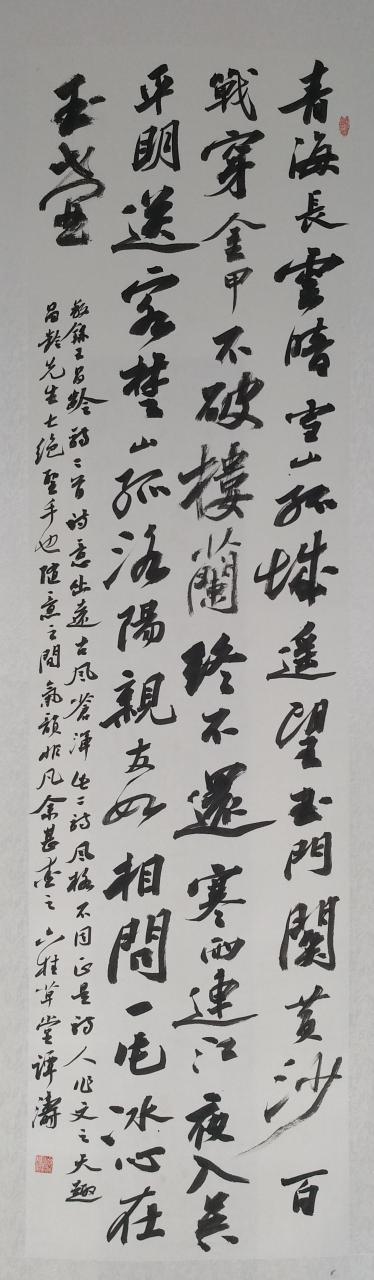 青海長雲暗雪山孤城遥望玉門関黄沙百
戰穿金甲不破樓蘭終不還寒雨連江夜入吴
平明送客楚山孤洛陽親友如相問一片冰心在
玉壺
敬録王昌齡詩二首詩意出遠古風蒼渾但二詩風格不同正是詩人作文之天趣
昌齡先生七绝聖手也随意之間氣韻非凡余甚愛之 六桂草堂譚濤